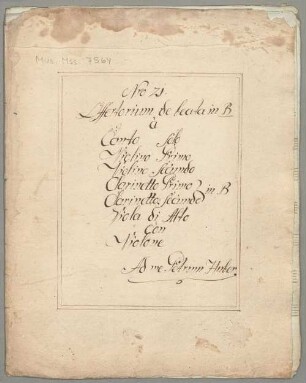 Mus. Mss. 7564
Nro 21
Offertorium de beata in B
à
Canto Solo
Violino Primo
Violino Secundo
Clarinetto Primo
Clarinetto Secundo in B
Viola di Alto
Con
Violone
Ad me Huber